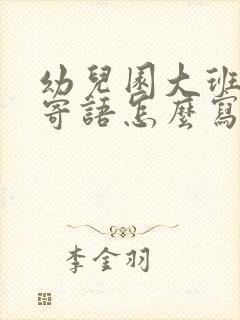 幼兒園大班
寄語怎麼寫
李金羽